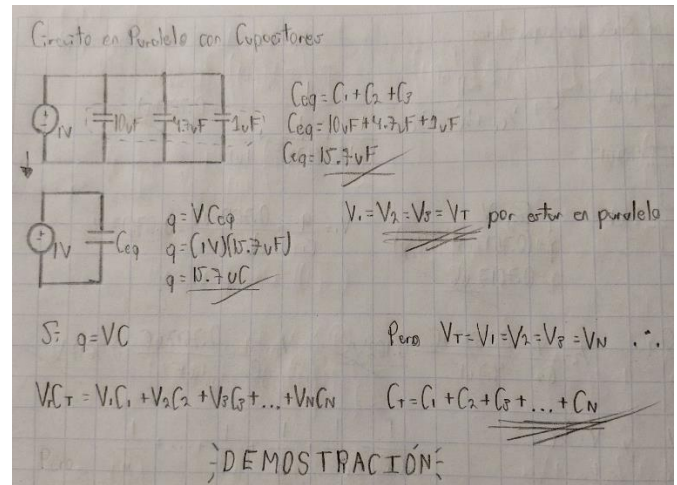 Circuito en Paralelo con Capacitores
1V 10uF 4.7uF 1uF
Ceq = C1 + C2 + C3
Ceq = 10uF + 4.7uF + 1uF
Ceq = 15.7uF
1V Ceq
q = VCeq
q = (1V)(15.7uF)
q = 15.7uC
V1 = V2 = V3 = VT por estar en paralelo
Si q = VC
Pero VT = V1 = V2 = V3 = VN ∴
VTCT = V1C1 + V2C2 + V3C3 + ... + VNCN
CT = C1 + C2 + C3 + ... + CN
DEMOSTRACIÓN